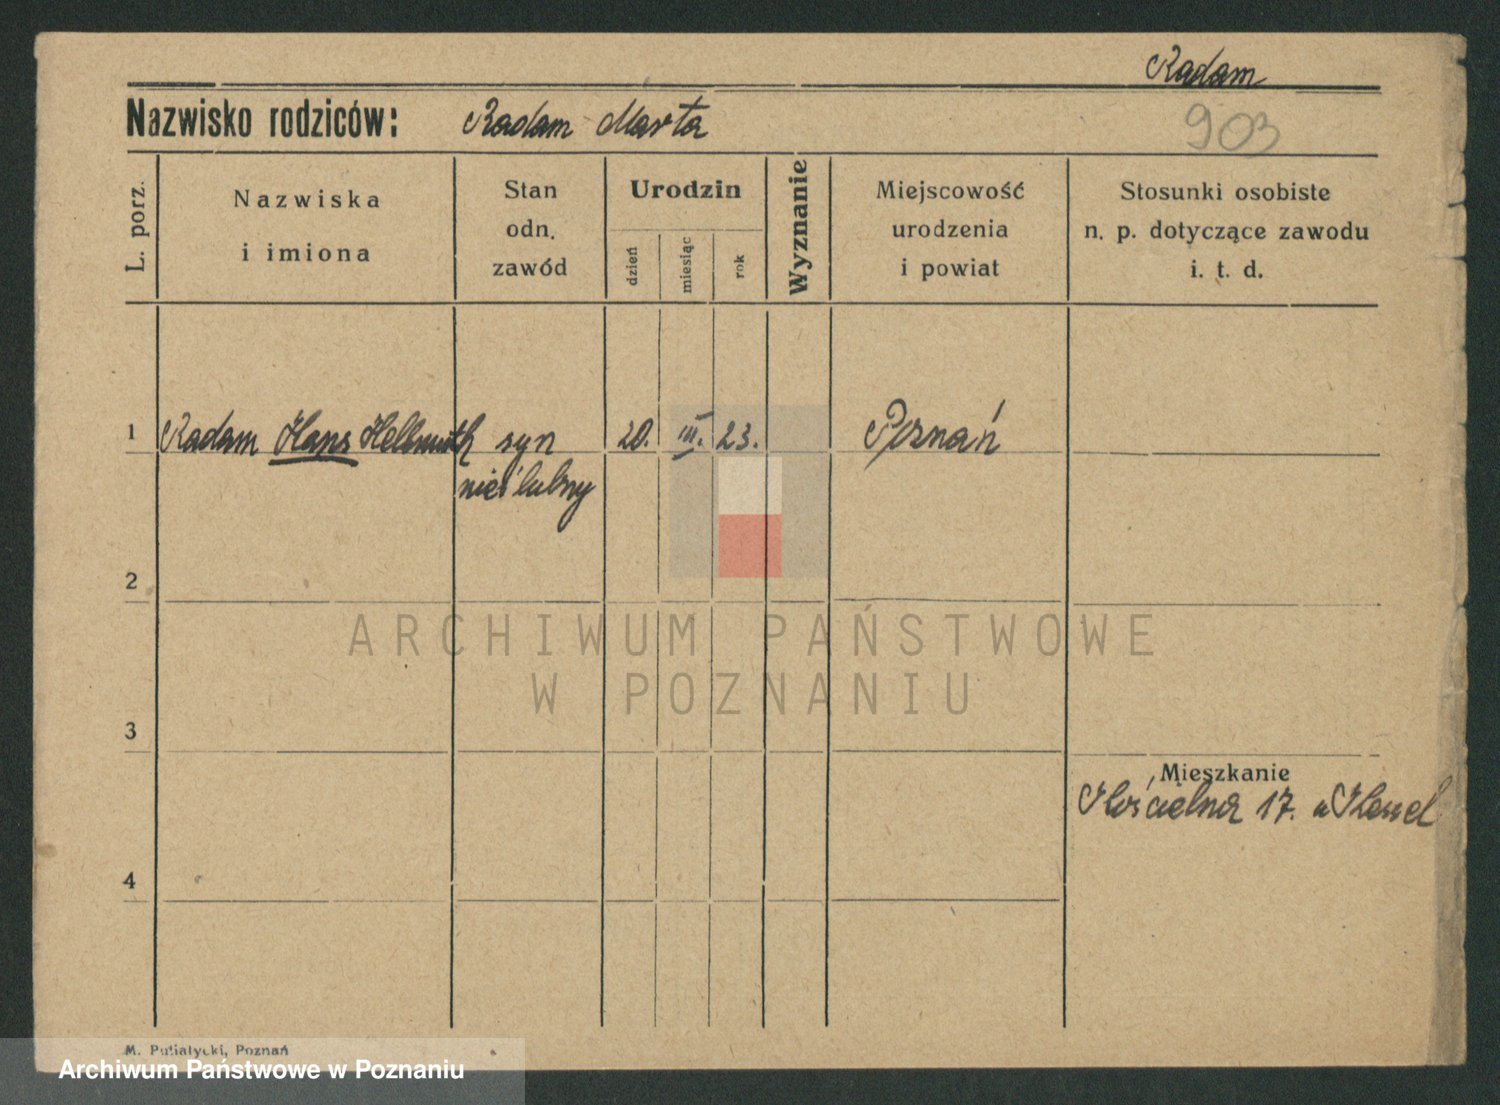 Radam
Nazwisko rodziców: Radam Marta
903
L. porz.
Nazwiska
i imiona
Stan
odn.
zawód
Urodzin
dzień
miesiąc
rok
Wyznanie
Miejscowość
urodzenia
i powiat
Stosunki osobiste
n. p. dotyczące zawodu
i. t. d.
1 Radam Hans Hellmuth syn 20. III. 23. Poznań
nieślubny
2
ARCHIWUM PAŃSTWOWE
W POZNANIU
3
Mieszkanie
Kościelna 17. u
4
M. Putiatycki, Poznań
Archiwum Państwowe w Poznaniu